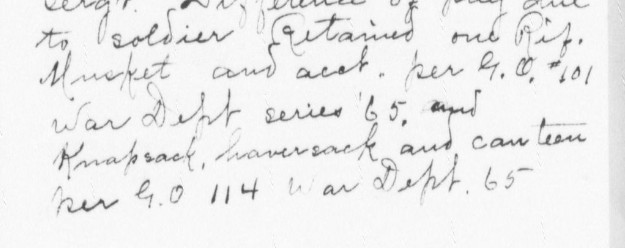 Sergt. Difference of pay due
to soldier Retained one Rif.
Musket and acct. per G.O. #101
War Dept series '65, and
Knapsack, haversack and canteen
per G.O 114 War Dept. 65